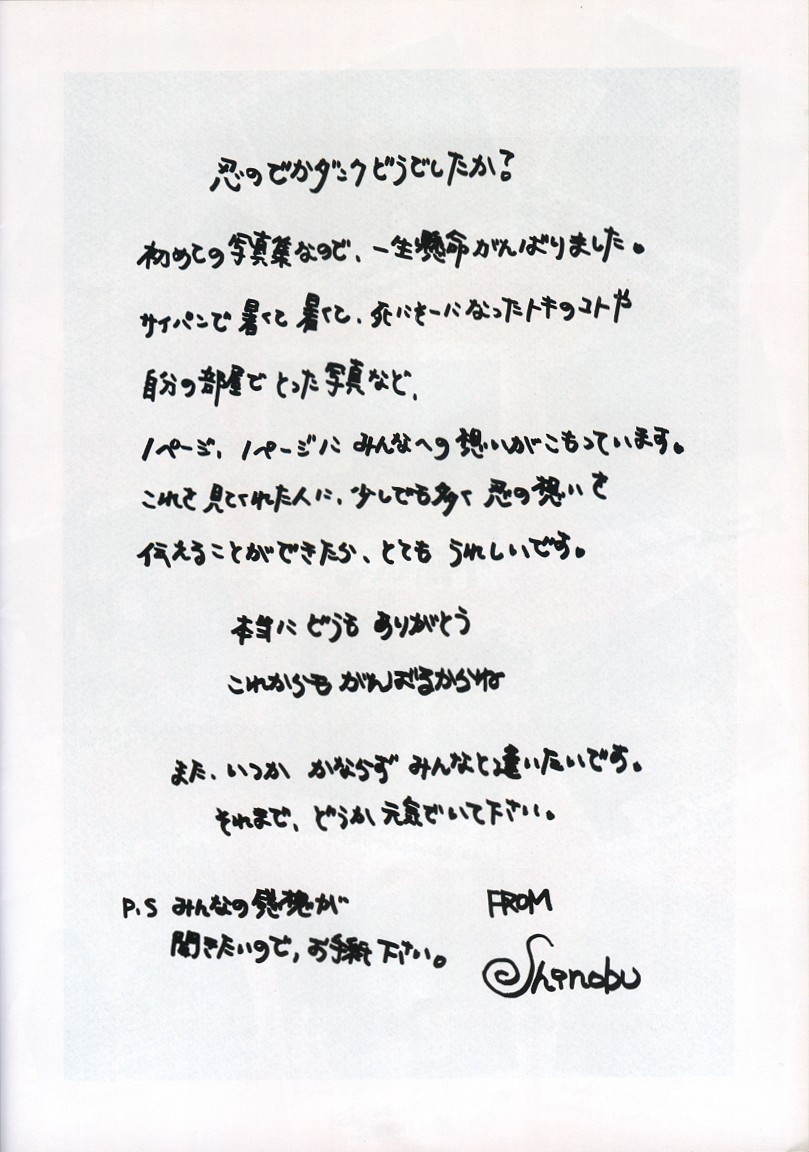 忍のでかダンクどうでしたか?
初めての写真集なので、一生懸命がんばりました。
サイパンで暑くて暑くて、死にそーになったトキのコトや
自分の部屋でとった写真など、
1ページ、1ページにみんなへの想いがこもっています。
これを見てくれた人に、少しでも多く忍の想いを
伝えることができたら、とてもうれしいです。
本当にどうもありがとう
これからもがんばるからね
また、いつかかならずみんなと逢いたいです。
それまで、どうか元気でいて下さい。
P.S みんなの感想が
聞きたいので、お手紙下さい。
FROM
Shinobu